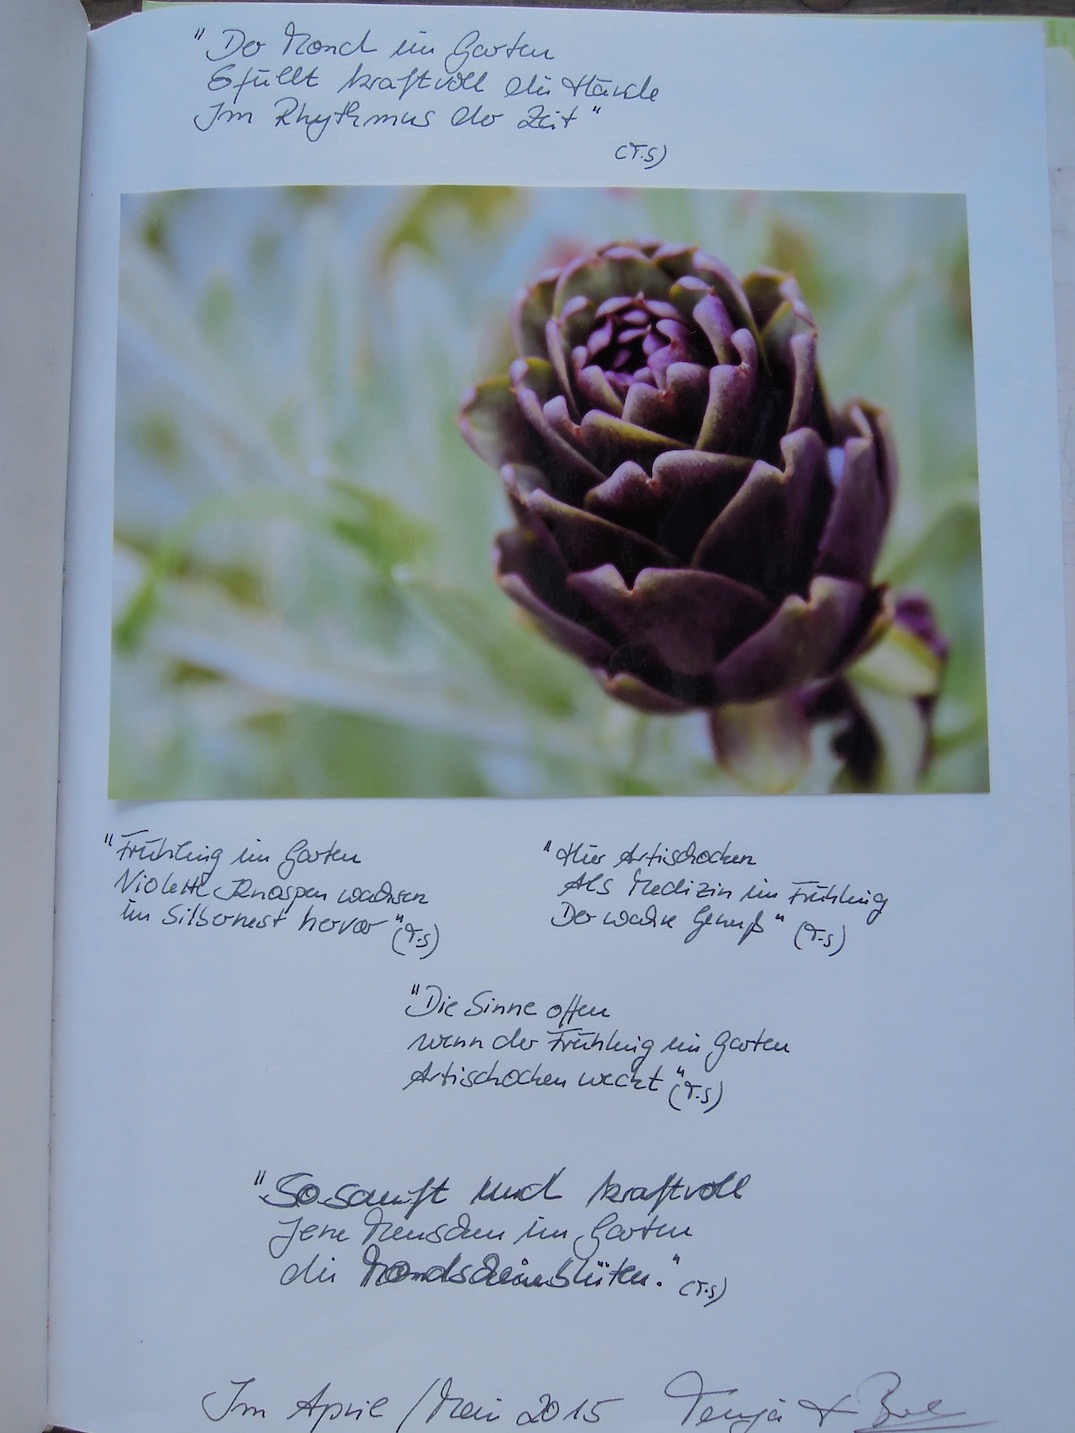 "Der Mond im Garten
Erfüllt kraftvoll die Hände
Im Rhythmus der Zeit"
(T.S)
"Frühling im Garten
Violette Knospen wachsen
im Silbernest hervor" (T.S)
"Hier Artischocken
Als Medizin im Frühling
Der wahre Genuß" (T.S)
"Die Sinne offen
wenn der Frühling im Garten
Artischocken weckt" (T.S)
"So sanft und kraftvoll
Jene Menschen im Garten
die Mondscheinblüten." (T.S)
Im April / Mai 2015 Tanja +